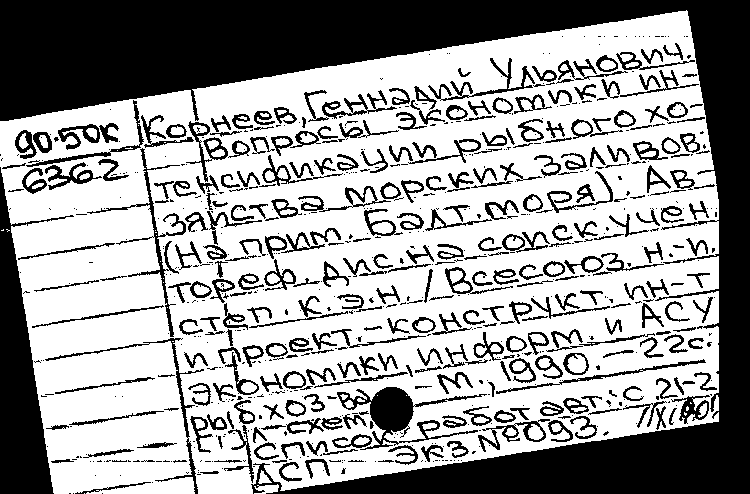 90-50к
6362
Корнеев, Геннадий Ульянович.
Вопросы экономики ин-
тенсификации рыбного хо-
зяйства морских заливов.
(На прим. Балт. моря): Ав-
тореф. дис. на соиск. учен.
степ. к.э.н. / Всесоюз. н.-и.
и проект.-конструкт. ин-т
экономики, информ. и АСУ
рыб. хоз-ва - М., 1990. - 22с.
л. схем,
Список работ авт.: с 21-2
ДСП. Экз. №093.